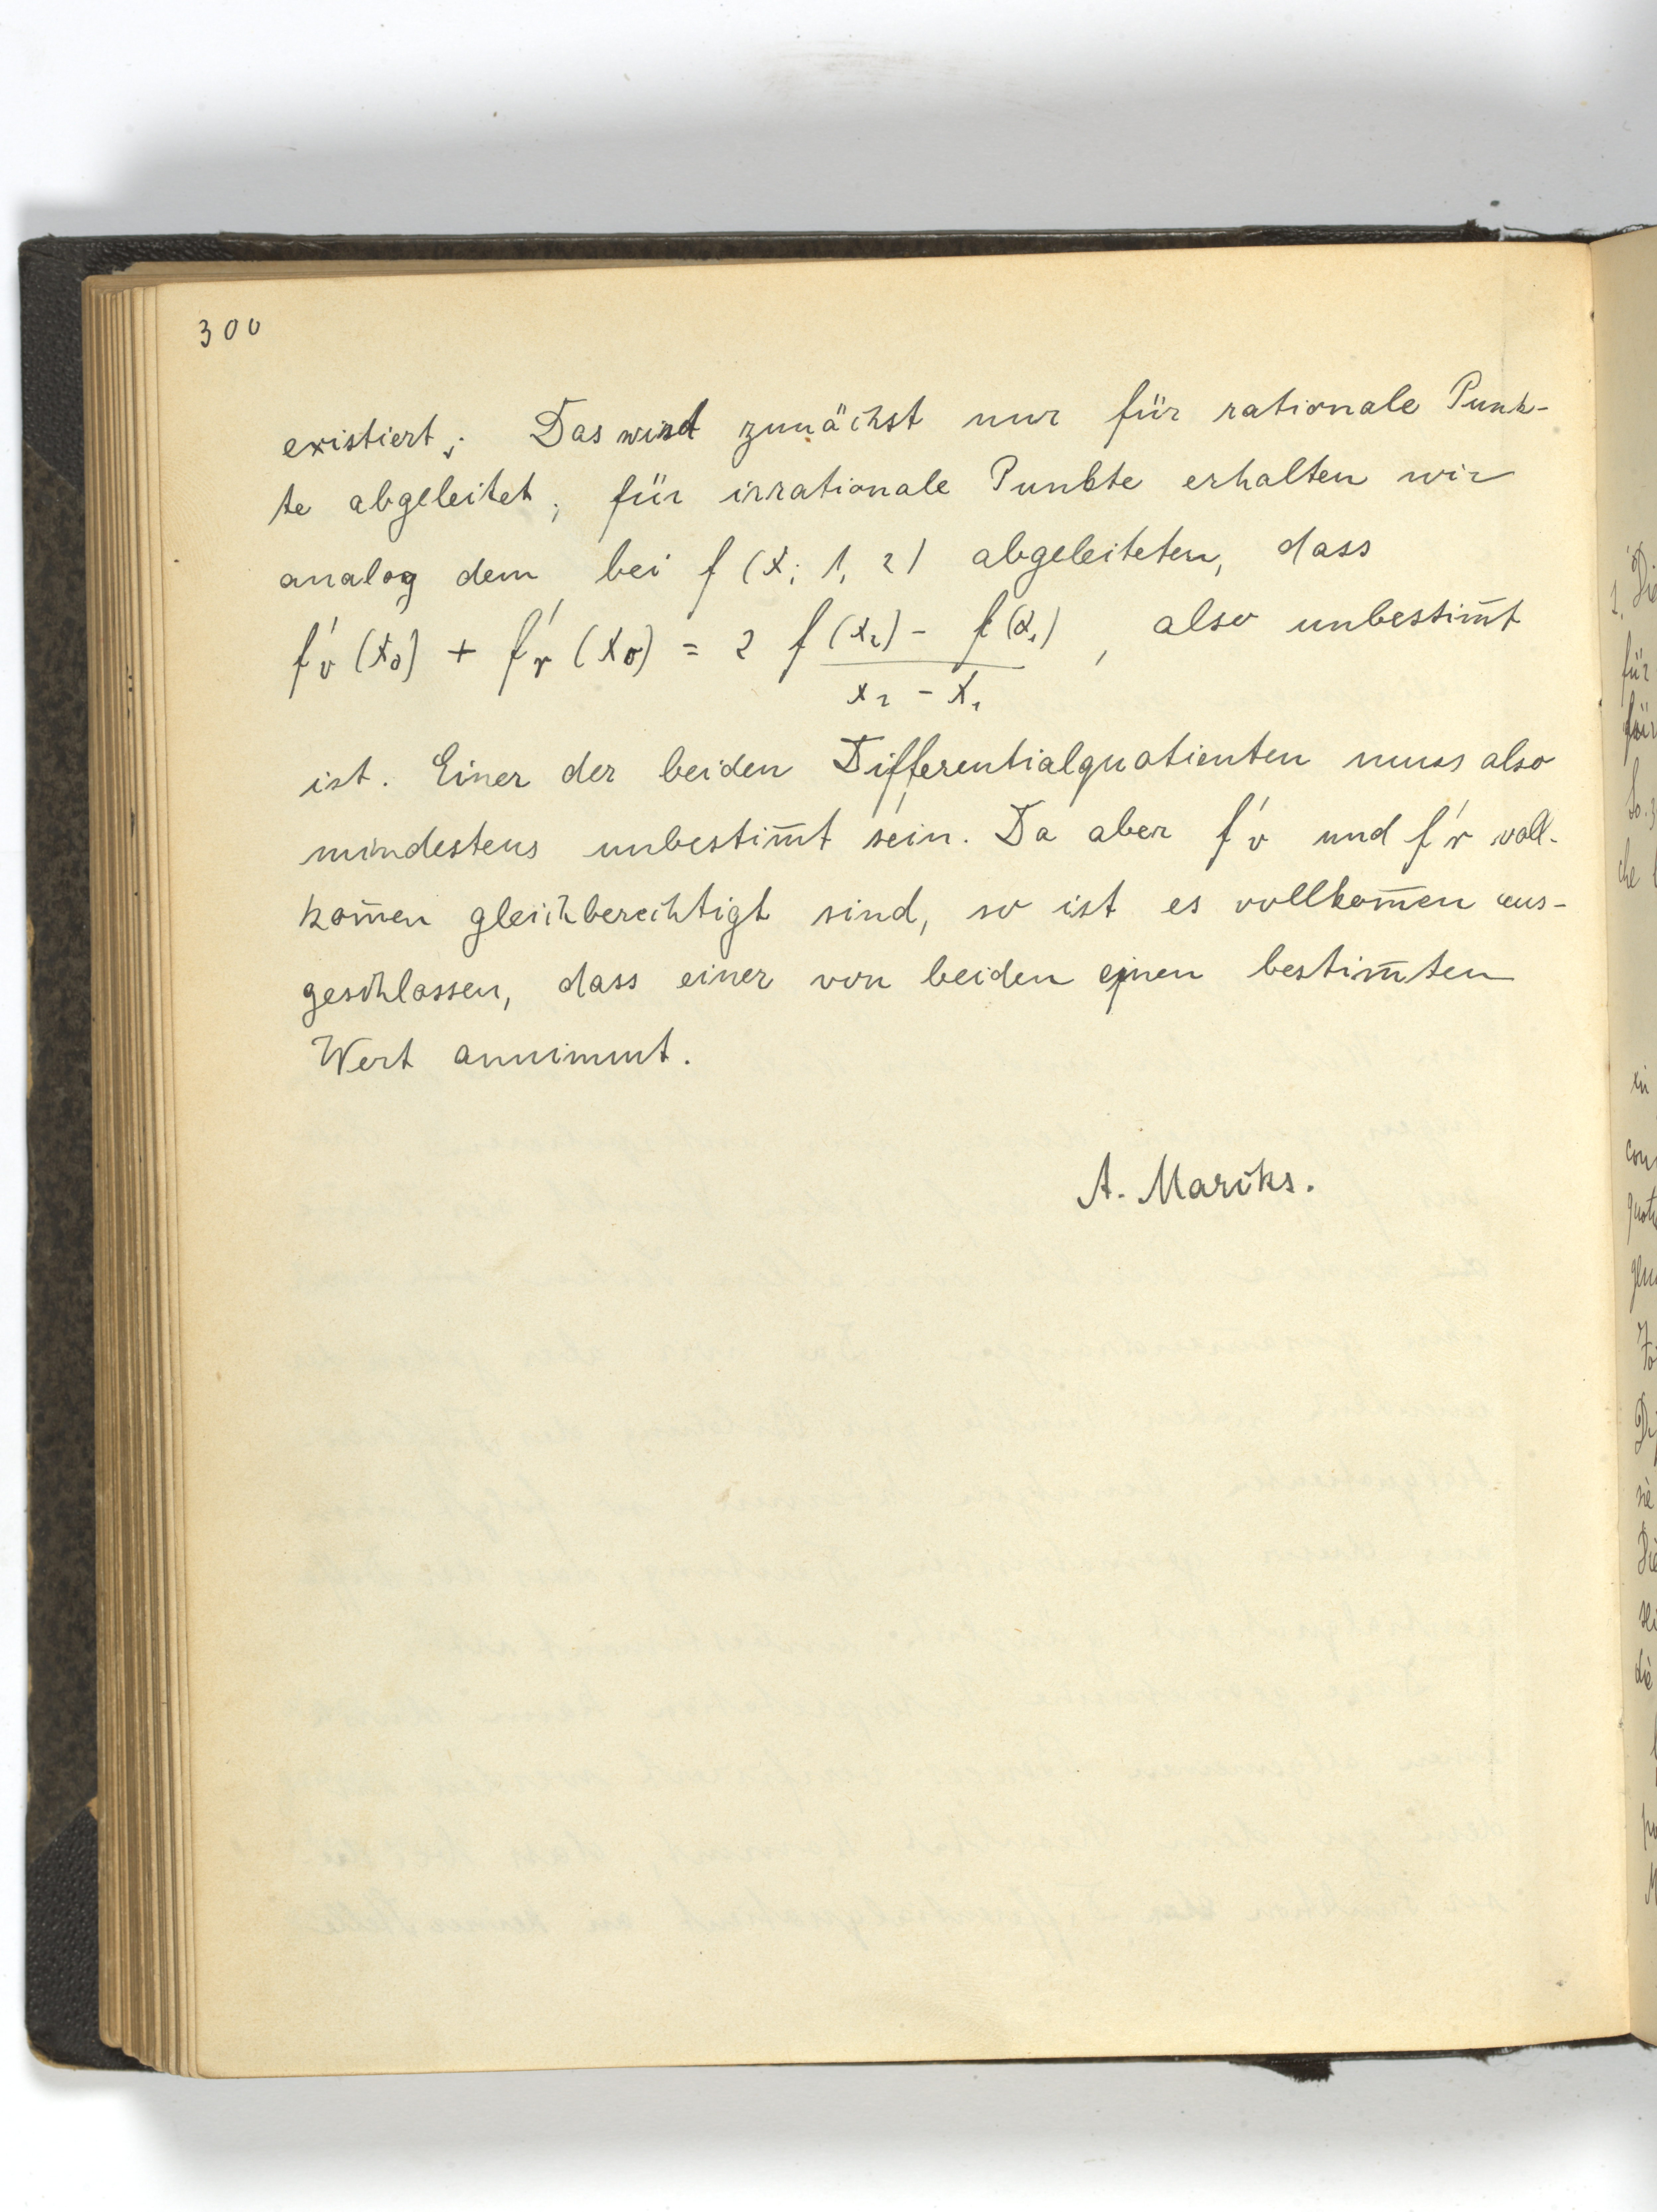 300
existiert; Das wird zunächst nur für rationale Punk-
te abgeleitet; für irrationale Punkte erhalten wir
analog dem bei f (x; 1, 2) abgeleiteten, dass
f'v (x0) + f'r (x0) = 2 f(x2) - f(x1) , also unbestim̄t
x2 - x1
ist. Einer der beiden Differentialquotienten muss also
mindestens unbestim̄t sein. Da aber f'v und f'r voll-
kom̄en gleichberechtigt sind, so ist es vollkom̄en aus-
geschlossen, dass einer von beiden einen bestim̄ten
Wert annimmt.
A. Marcks.